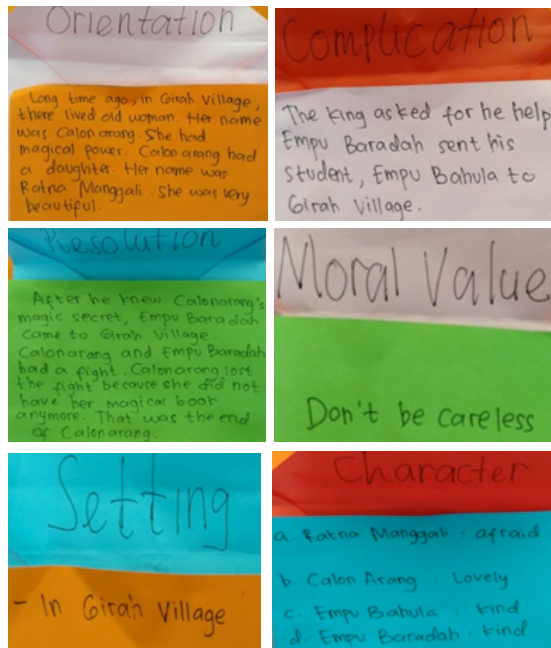 Orientation
Long time ago, in Girah Village,
there lived old woman. Her name
was Calon arang. She had
magical power. Calon arang had
a daughter. Her name was
Ratna Manggali. She was very
beautiful.
Complication
The king asked for he help
Empu Baradah sent his
student, Empu Bahula to
Girah Village.
Resolution
After he knew Calonarang's
magic secret, Empu Baradah
came to Girah Village.
Calonarang and Empu Baradah
had a fight. Calonarang lost
the fight because she did not
have her magical book
anymore. That was the end
of Calonarang.
Moral Value
Don't be careless
Setting
- In Girah Village
Character
a. Ratna Manggali : afraid
b. Calon Arang : Lovely
c. Empu Bahula : kind
d. Empu Baradah : kind